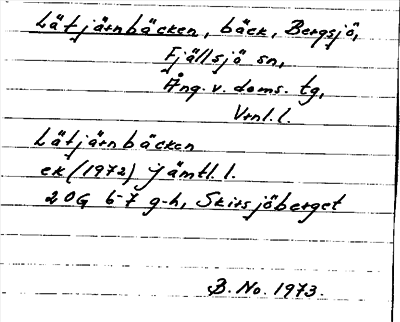 Låtjärnbäcken, bäck, Bergsjö,
Fjällsjö sn,
Ång. v. doms. tg,
Vrnl. l.
Låtjärnbäcken
ek (1972) Jämtl. l.
20G 6-7 g-h, Skirsjöberget
B. No. 1973.